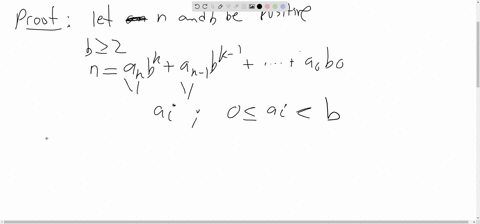 Proof: let n and b be positive
b ≥ 2
n = a_n b^k + a_{n-1} b^{k-1} + ... + a_0 b_0
a_i ; 0 ≤ a_i < b